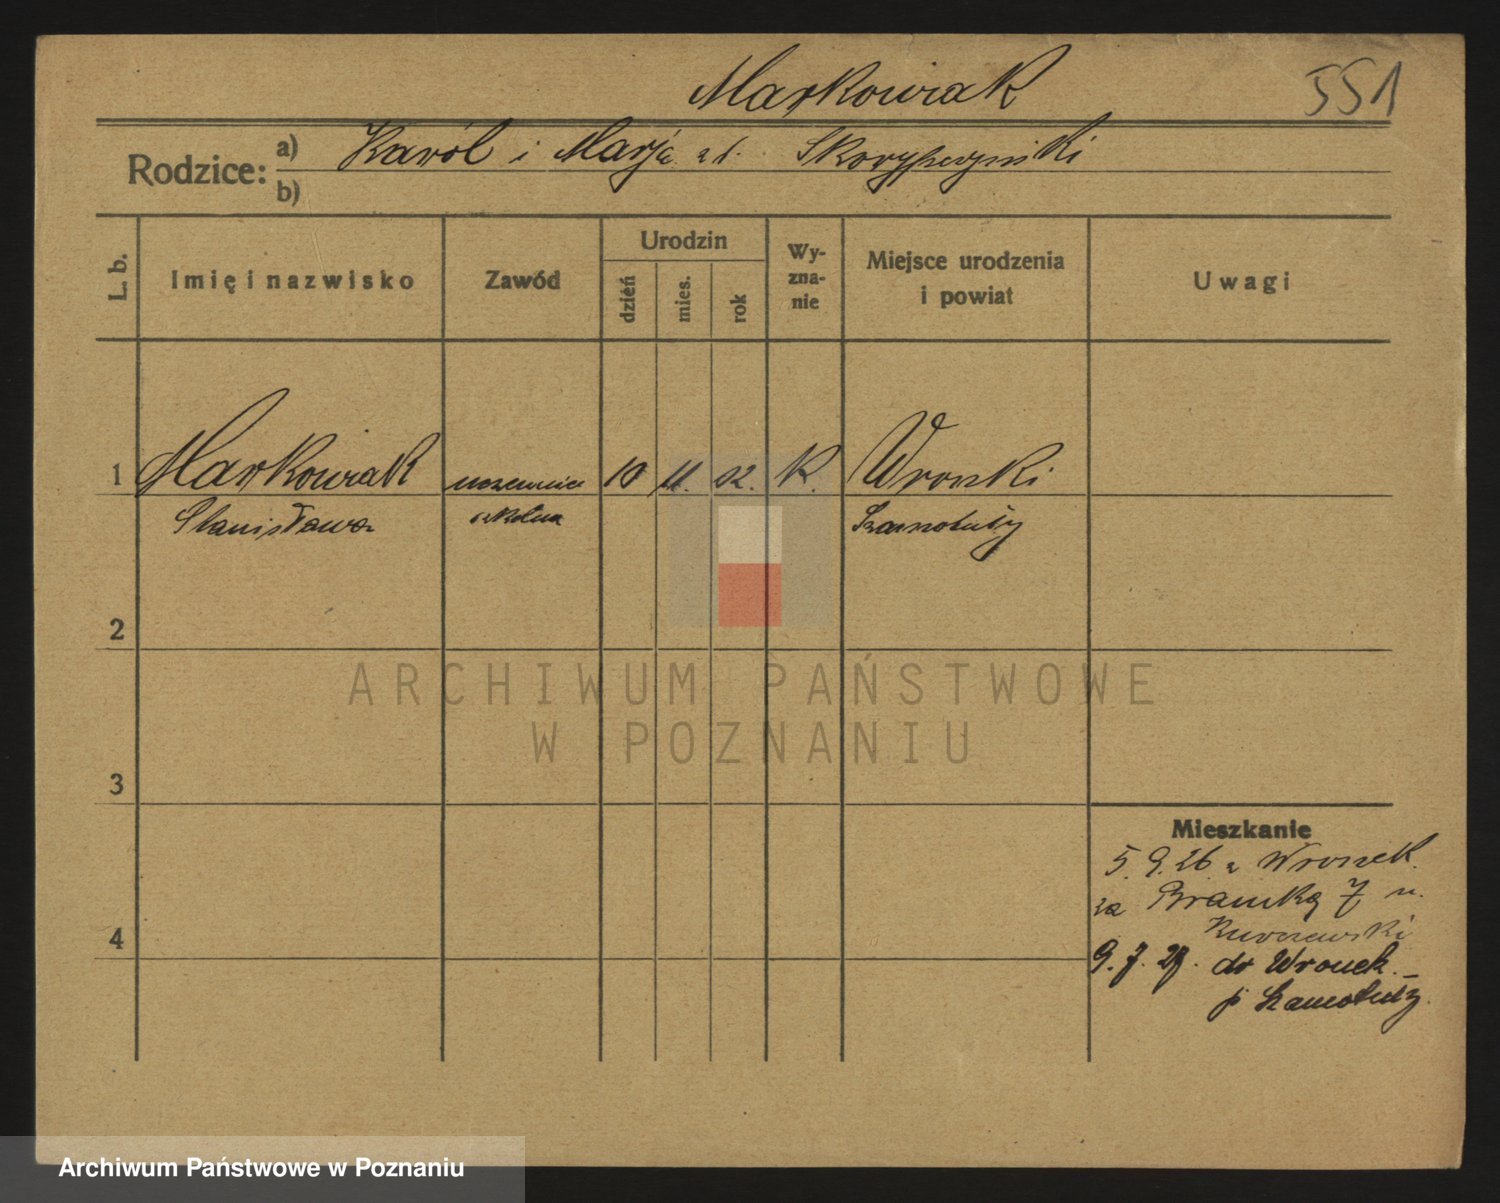 Markowiak
551
Rodzice: a) Karól i Marja z d.
b)
L. b.
Imię i nazwisko
Zawód
Urodzin
dzień
mies.
rok
Wy-
zna-
nie
Miejsce urodzenia
i powiat
Uwagi
1 Markowiak uczennica 10 11. 02. K. Wronki
Stanisława szkolna Szamotuły
2
3
4
Mieszkanie
5. 9. 26 z Wronek
za Bramką 7 u.
9. 7. 27. do Wronek. –
p. Szamotuły.
ARCHIWUM PAŃSTWOWE
W POZNANIU
Archiwum Państwowe w Poznaniu